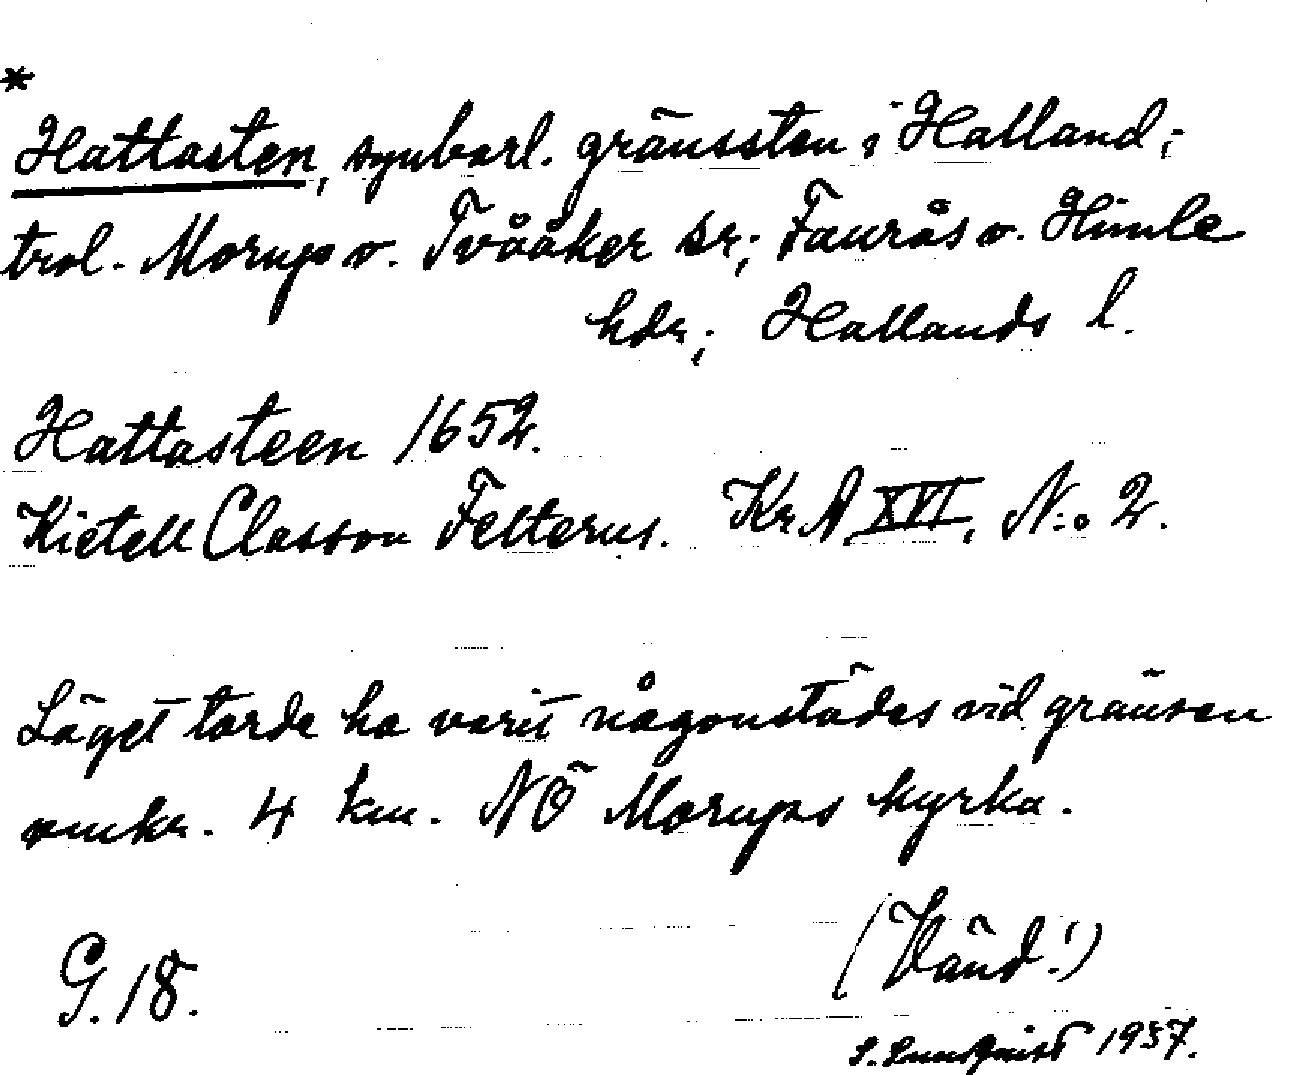 *
Hattasten, synbarl. gränssten i Halland;
trol. Morups o. Tvååker sr; Faurås o. Himle
hdr; Hallands l.
Hattasteen 1652.
Kietell Classon Felterus. KrA XVI, N:o 2.
Läget torde ha varit någonstädes vid gränsen
omkr. 4 km. NÖ Morups kyrka.
(Vänd!)
G. 18.
S. Lundqvist 1937.